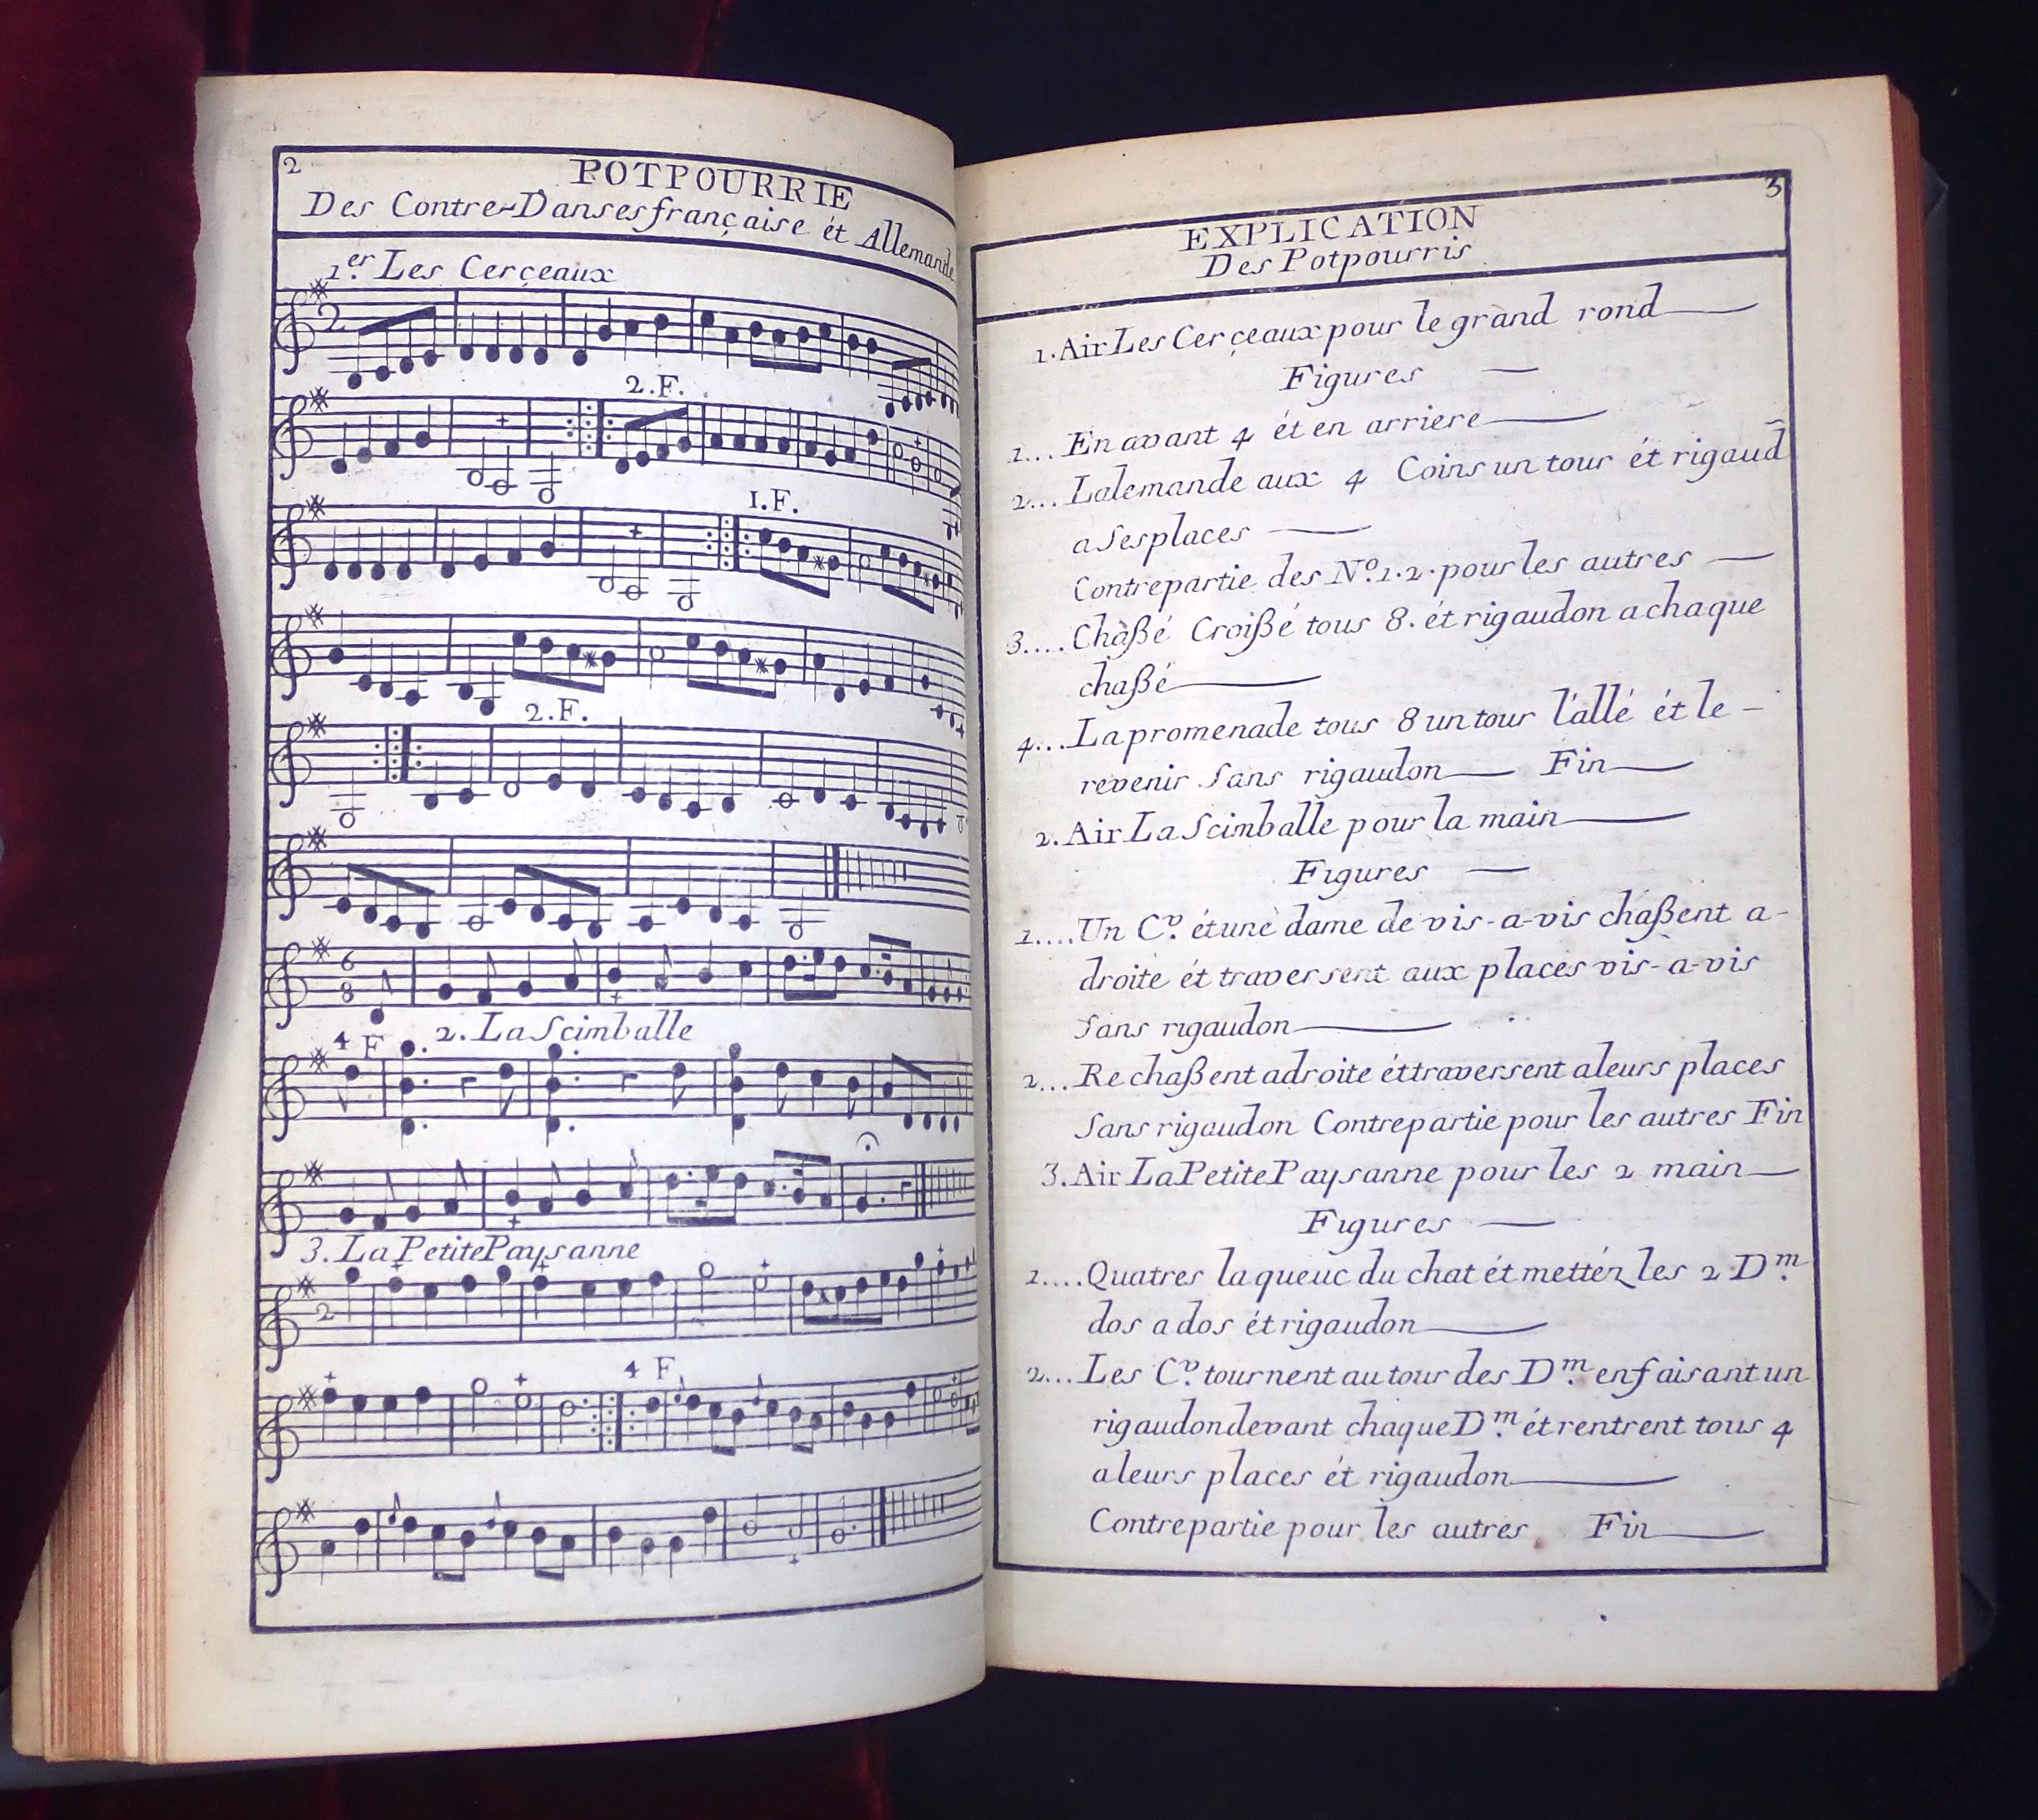 2
POTPOURRIE
Des Contre-Danses française ét Allemande
1.er Les Cerçeaux
2
2.F.
1.F.
2.F.
6
8
4 F 2. La Scimballe
3. La Petite Paysanne
2
4 F
3
EXPLICATION
Des Potpourris
1. Air Les Cerçeaux pour le grand rond
Figures
1... En avant 4 ét en arriere
2... Lalemande aux 4 Coins un tour ét rigaud̃
a Ses places
Contrepartie des No. 1.2. pour les autres
3.... Chaßé Croißé tous 8. ét rigaudon a chaque
chaßé
4... La promenade tous 8 un tour l'allé ét le -
revenir Sans rigaudon Fin
2. Air La Scimballe pour la main
Figures
1.... Un Cv. ét une dame de vis-a-vis chaßent a-
droite ét traversent aux places vis-a-vis
Sans rigaudon
2... Re chaßent a droite ét traversent a leurs places
Sans rigaudon Contrepartie pour les autres Fin
3. Air La Petite Paysanne pour les 2 main
Figures
1.... Quatres la queuc du chat ét mettéz les 2 Dm.
dos a dos ét rigaudon
2... Les Cv. tournent au tour des Dm. en faisant un
rigaudon devant chaque Dm. ét rentrent tous 4
a leurs places ét rigaudon
Contrepartie pour les autres Fin